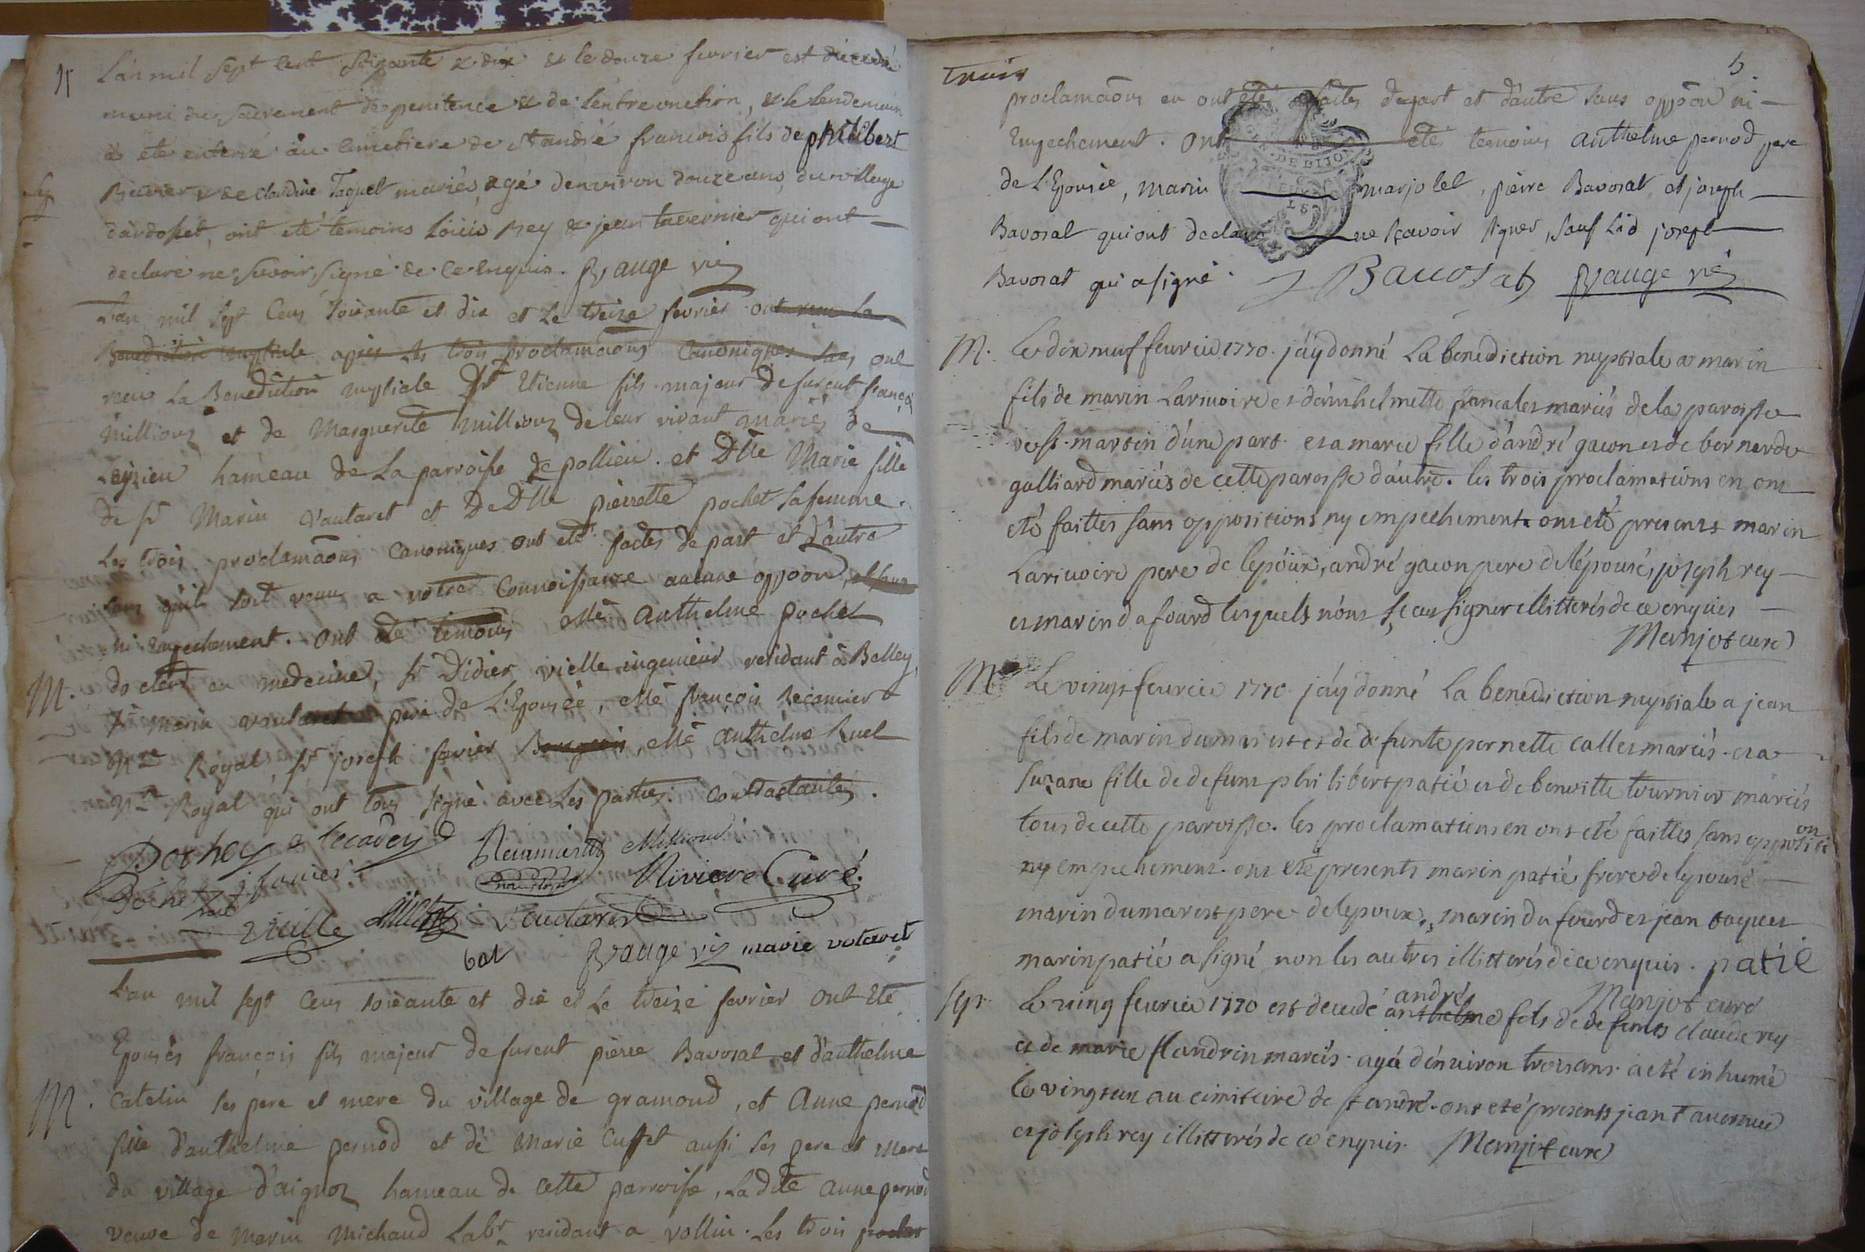 L'an mil sept cent soixante & dix & le douze fevrier est décédé
muni du sacrement de penitence & de l'extreonction, & le lendemain
a ete enterré au cimetiere de St andré francois fils de philibert
& de claudine Taquet mariés, agé d'environ douze ans, du village
d'ardosset, ont eté temoins Loüis rey & jean tavernier qui ont
declaré ne scavoir signé de ce enquis. Bauge vic
L'an mil sept Cens soixante et dix et Le treize fevrier ont reçu La
Benediction nuptiale après les trois proclamaõns Canoniques ont
reçu La Benediction nuptiale Sr Etienne fils majeur de furent françois
millioux et de Marguerite millioux de leur vivant mariés de
Leyzieu hameau de La parroisse de pollieu. et Dlle Marie fille
de Sr Marin Vautaret et De Dlle pierrette pochet sa femme.
Les trois proclamaõns Canoniques ont eté faites de part et d'autre
sans qu'il soit venu a notre Connoissance aucune oppõon
ni Empechement. ont été temoins Me Anthelme pochet
M. docteur en medecine, Sr Didier vielle ingenieur residant à Belley,
Sr marin père de L'Epousée, Me françois Recamier
Nre Royal Sr joseph favier Me anthelme huet
Nre Royal qui ont tous signé avec Les parties Contractantes.
Pochet
Recamier Millioux
Pochet j favier Riviere Curé.
vielle Vautaret
Bauge vic marie votaret
L'an mil sept Cens soixante et dix et Le treize fevrier ont eté
Epousés françois fils majeur de furent pierre Bavosat et d'anthelme
M. Catelin ses pere et mere du village de gramond, et Anne pernod
fille d'anthelme pernod et de Marie Cusset aussi ses pere et mere
du village d'aignoz hameau de cette parroisse, Ladite anne pernod
veuve de Marin Michaud Labr. residant a vollin. Les trois proclam
trois
5
proclamaõns en ont eté faites depart et d'autre sans oppõon ni
Empechement. Ont eté temoins anthelme pernod pere
de L'Epousée, Marin marjolet, pierre Bavosat et joseph
Bavosat qui ont declaré ne sçavoir signer, sauf Led joseph
Bavosat qui a signé. J Bavosat Bauge vic
DE DIJON
M. Le dix neuf feuvrier 1770. j'ay donné La benediction nuptiale a marin
fils de marin Larivoire et d'anthelmette francalet mariés de la paroisse
de st. martin d'une part. et a marie fille d'andré gacon et de bernarde
galliard mariés de cette paroisse d'autre. les trois proclamations en ont
eté faittes sans oppositions ny empechement. ont eté presents marin
Larivoire pere de lepoux, andré gacon pere de lépouse, joseph rey
et marin dafourd lesquels n'ont sceu signer illitterés de ce enquis
Manjot curé
M Le vingt feuvrier 1770. j'ay donné La benediction nuptiale a jean
fils de marin dumarest et de defunte pernette callet mariés. et a
suzane fille de defunt philibert patié et de benoitte tournier mariés
tous de cette paroisse. les proclamations en ont eté faittes sans opposition
ny empechement. ont eté presents marin patié frere de lepouse
marin dumarest pere de lepoux, marin du fourd et jean taquet
marin patié a signé non les autres illitterés de ce enquis. patié
Manjot curé
Sep. Le ving feuvrier 1770 est decedé andré anthelme fils de defunts claude rey
et de marie flandrin mariés. agé d'environ trois ans. a eté inhumé
Le vingt un au cimitiere de st andré. ont eté presents jean tavernier
et joseph rey illitterés de ce enquis. Manjot curé